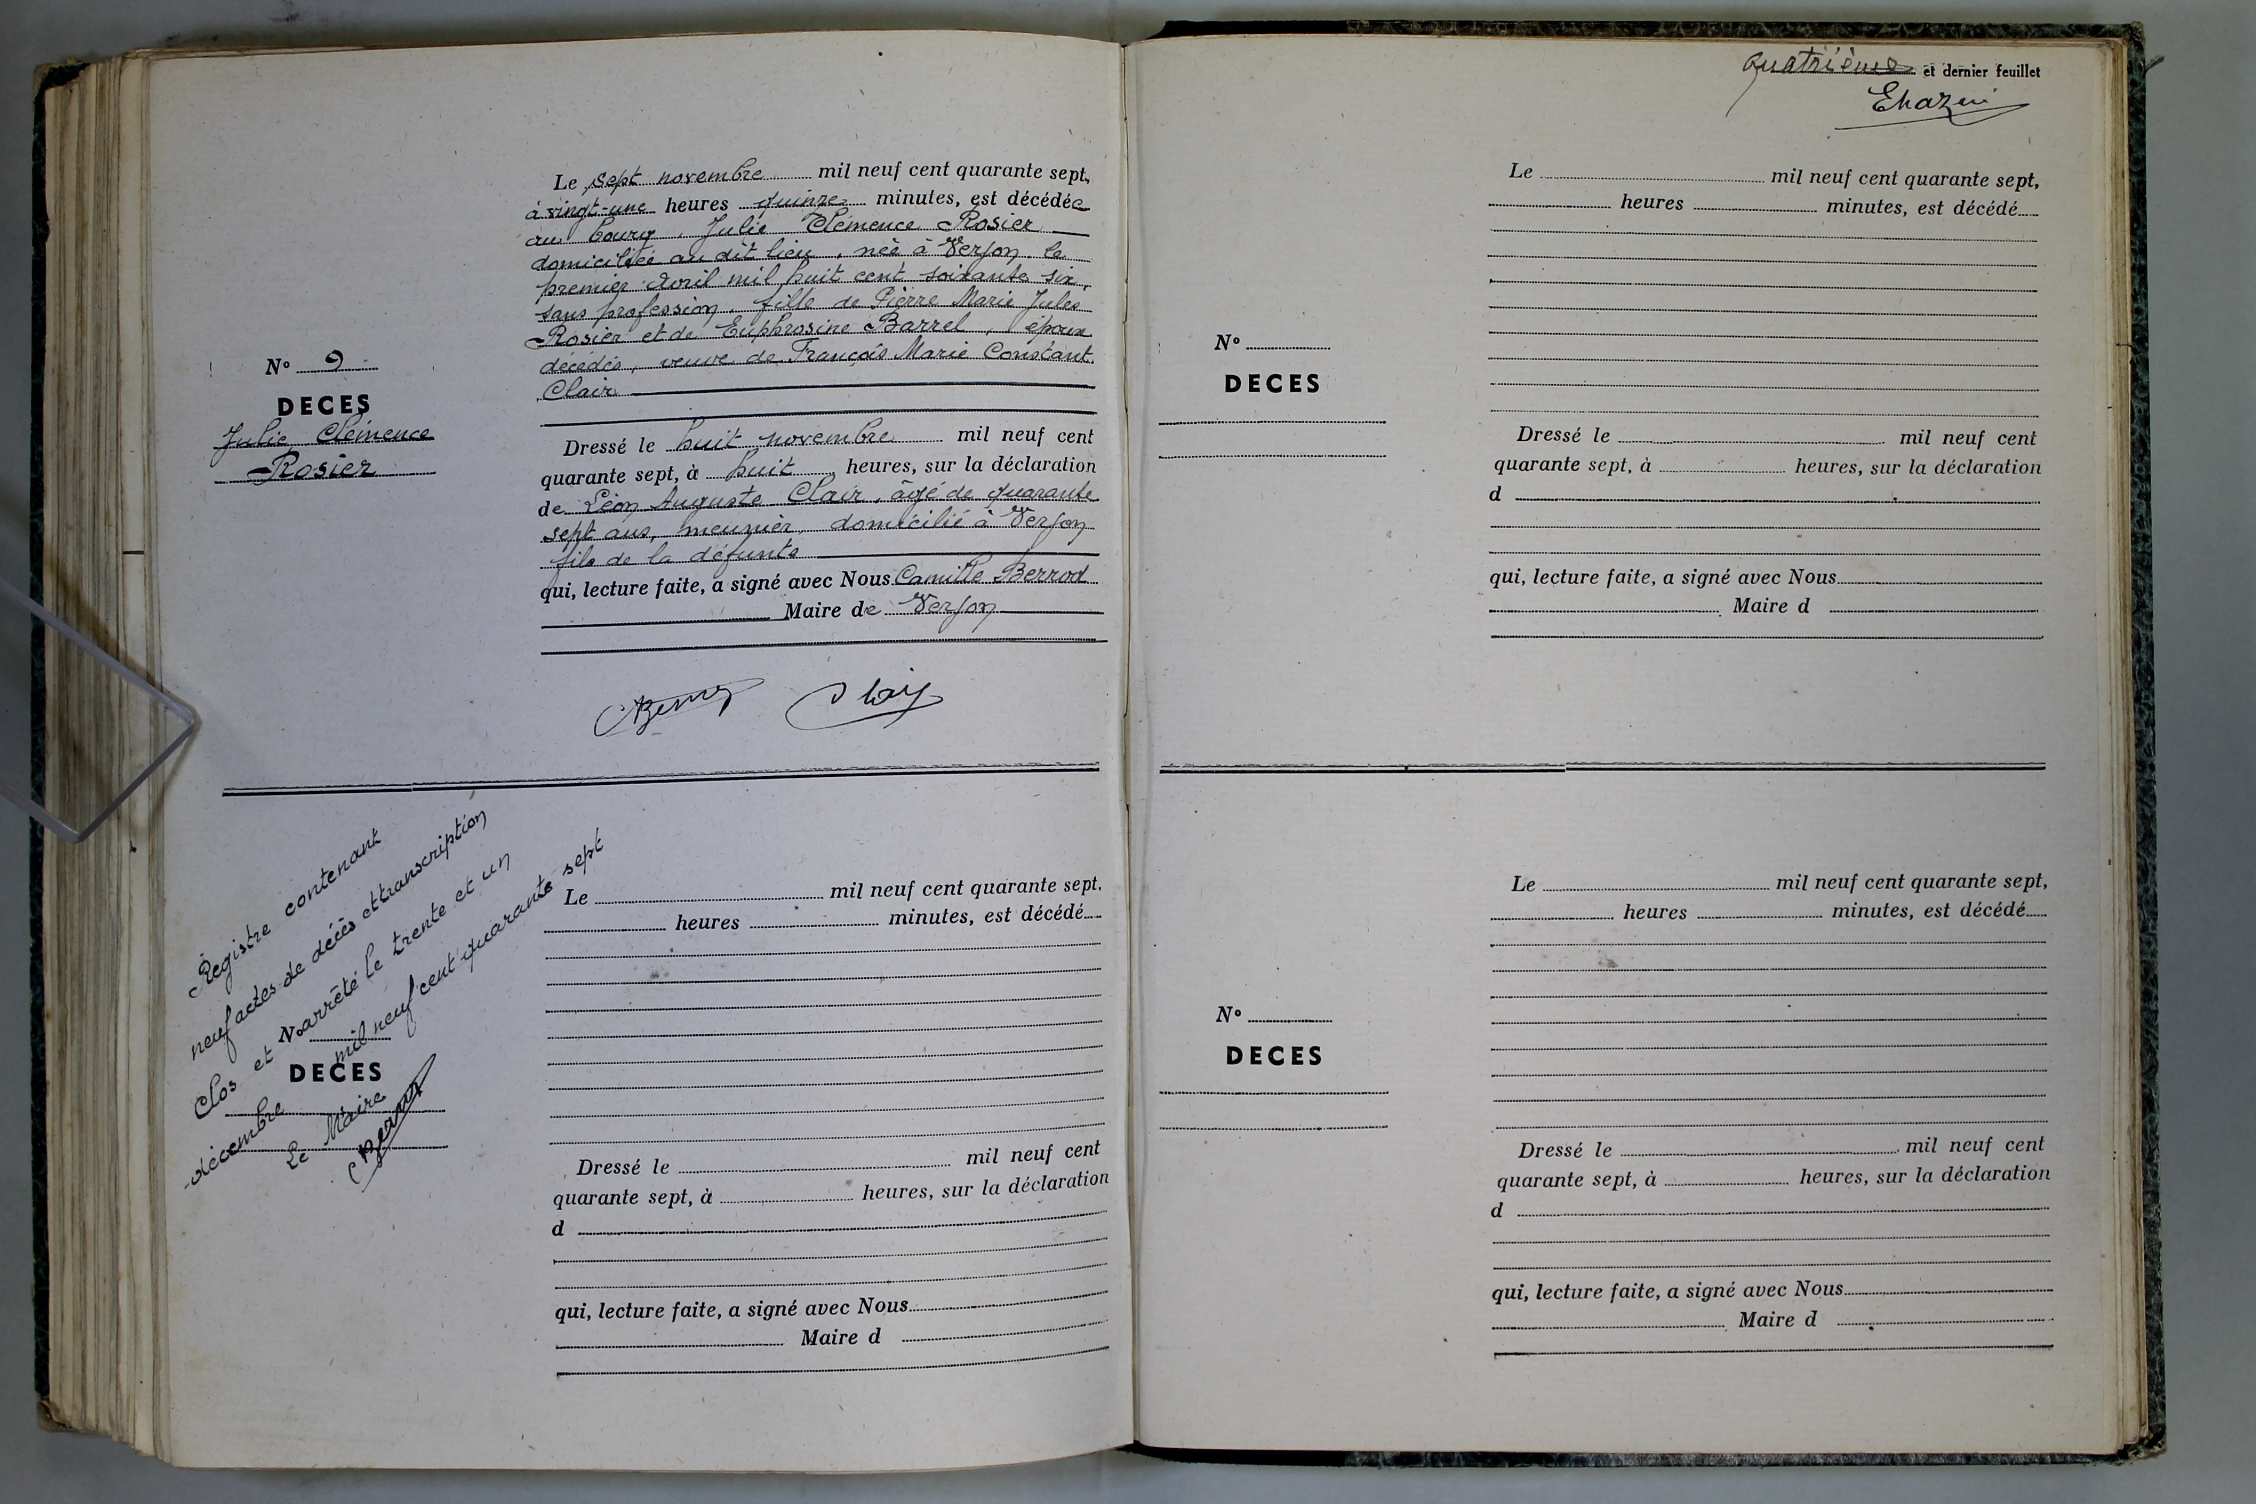 N° 9
DECES
Julie Clémence
Rosier
Le sept novembre mil neuf cent quarante sept,
à vingt-une heures quinze minutes, est décédée
au bourg, Julie Clémence Rosier
domiciliée au dit lieu, née à Verjon le
premier Avril mil huit cent soixante six,
sans profession, fille de Pierre Marie Jules
Rosier et de Euphrosine Barrel, époux
décédés, veuve de François Marie Constant
Clair
Dressé le huit novembre mil neuf cent
quarante sept, à huit heures, sur la déclaration
de Léon Auguste Clair, âgé de quarante
sept ans, meunier, domicilié à Verjon
fils de la défunte
qui, lecture faite, a signé avec Nous Camille Berrod
Maire de Verjon
Clair
Registre contenant
neuf actes de décès et transcription
Clos et arrêté le trente et un
décembre mil neuf cent quarante sept
Le Maire
N°
DECES
Le mil neuf cent quarante sept,
heures minutes, est décédé
Dressé le mil neuf cent
quarante sept, à heures, sur la déclaration
d
qui, lecture faite, a signé avec Nous
Maire d
quatrième et dernier feuillet
N°
DECES
Le mil neuf cent quarante sept,
heures minutes, est décédé
Dressé le mil neuf cent
quarante sept, à heures, sur la déclaration
d
qui, lecture faite, a signé avec Nous
Maire d
N°
DECES
Le mil neuf cent quarante sept,
heures minutes, est décédé
Dressé le mil neuf cent
quarante sept, à heures, sur la déclaration
d
qui, lecture faite, a signé avec Nous
Maire d